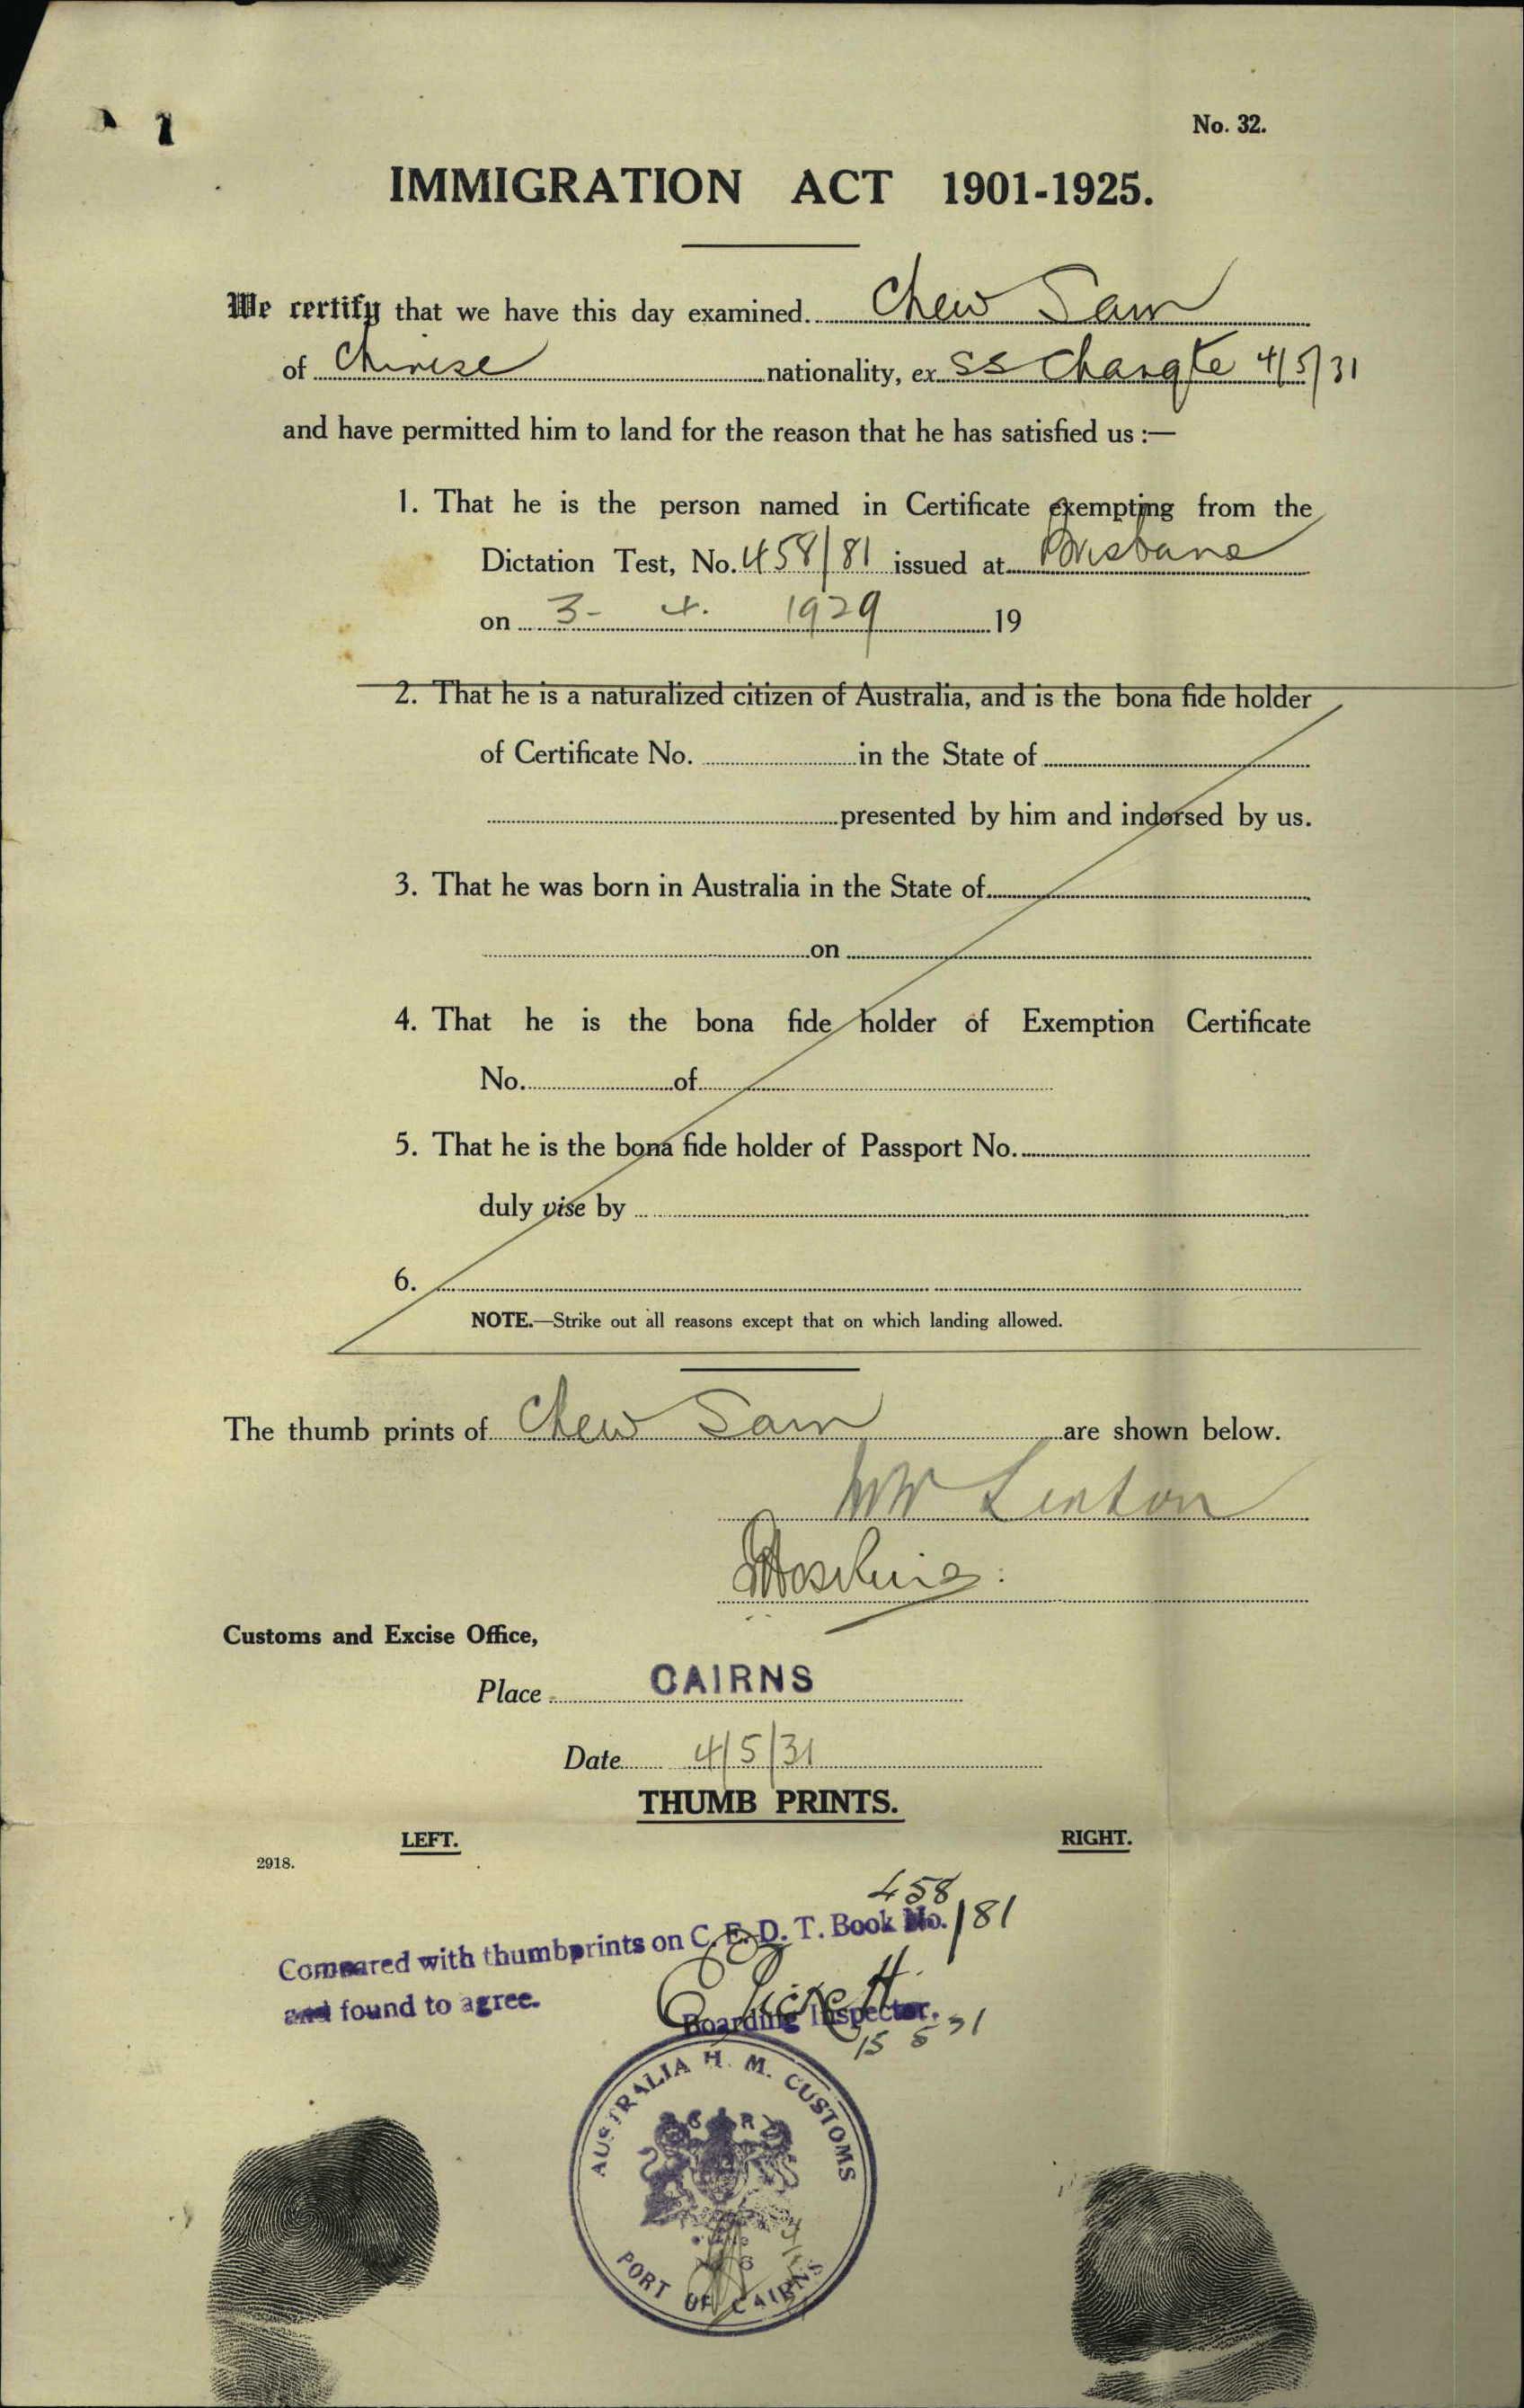 1
No. 32.
IMMIGRATION ACT 1901-1925.
We certify that we have this day examined Chew Sam
of Chinese nationality, ex SS Changte 4/5/31
and have permitted him to land for the reason that he has satisfied us :—
1. That he is the person named in Certificate exempting from the
Dictation Test, No. 458/81 issued at Brisbane
on 3- 4. 1929 19
2. That he is a naturalized citizen of Australia, and is the bona fide holder
of Certificate No. in the State of
presented by him and indorsed by us.
3. That he was born in Australia in the State of
on
4. That he is the bona fide holder of Exemption Certificate
No. of
5. That he is the bona fide holder of Passport No.
duly vise by
6.
NOTE.—Strike out all reasons except that on which landing allowed.
The thumb prints of Chew Sam are shown below.
Linton
Customs and Excise Office,
Place CAIRNS
Date 4/5/31
THUMB PRINTS.
LEFT. RIGHT.
2918.
458
Compared with thumbprints on C. E. D. T. Book No. /81
and found to agree.
Boarding Inspector.
15 5 31
AUSTRALIA H. M. CUSTOMS
G R
6
PORT OF CAIRNS